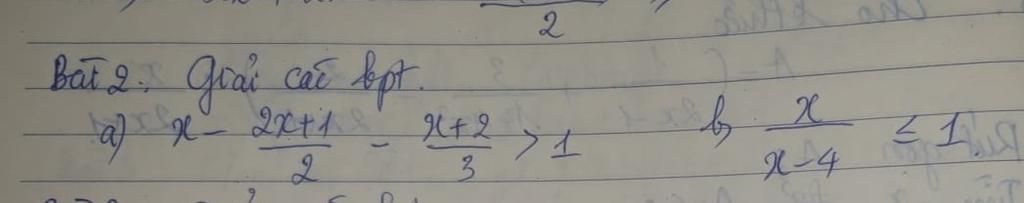 2
Bài 2: Giải các bpt.
a) x - \frac{2x+1}{2} - \frac{x+2}{3} > 1 b, \frac{x}{x-4} ≤ 1.